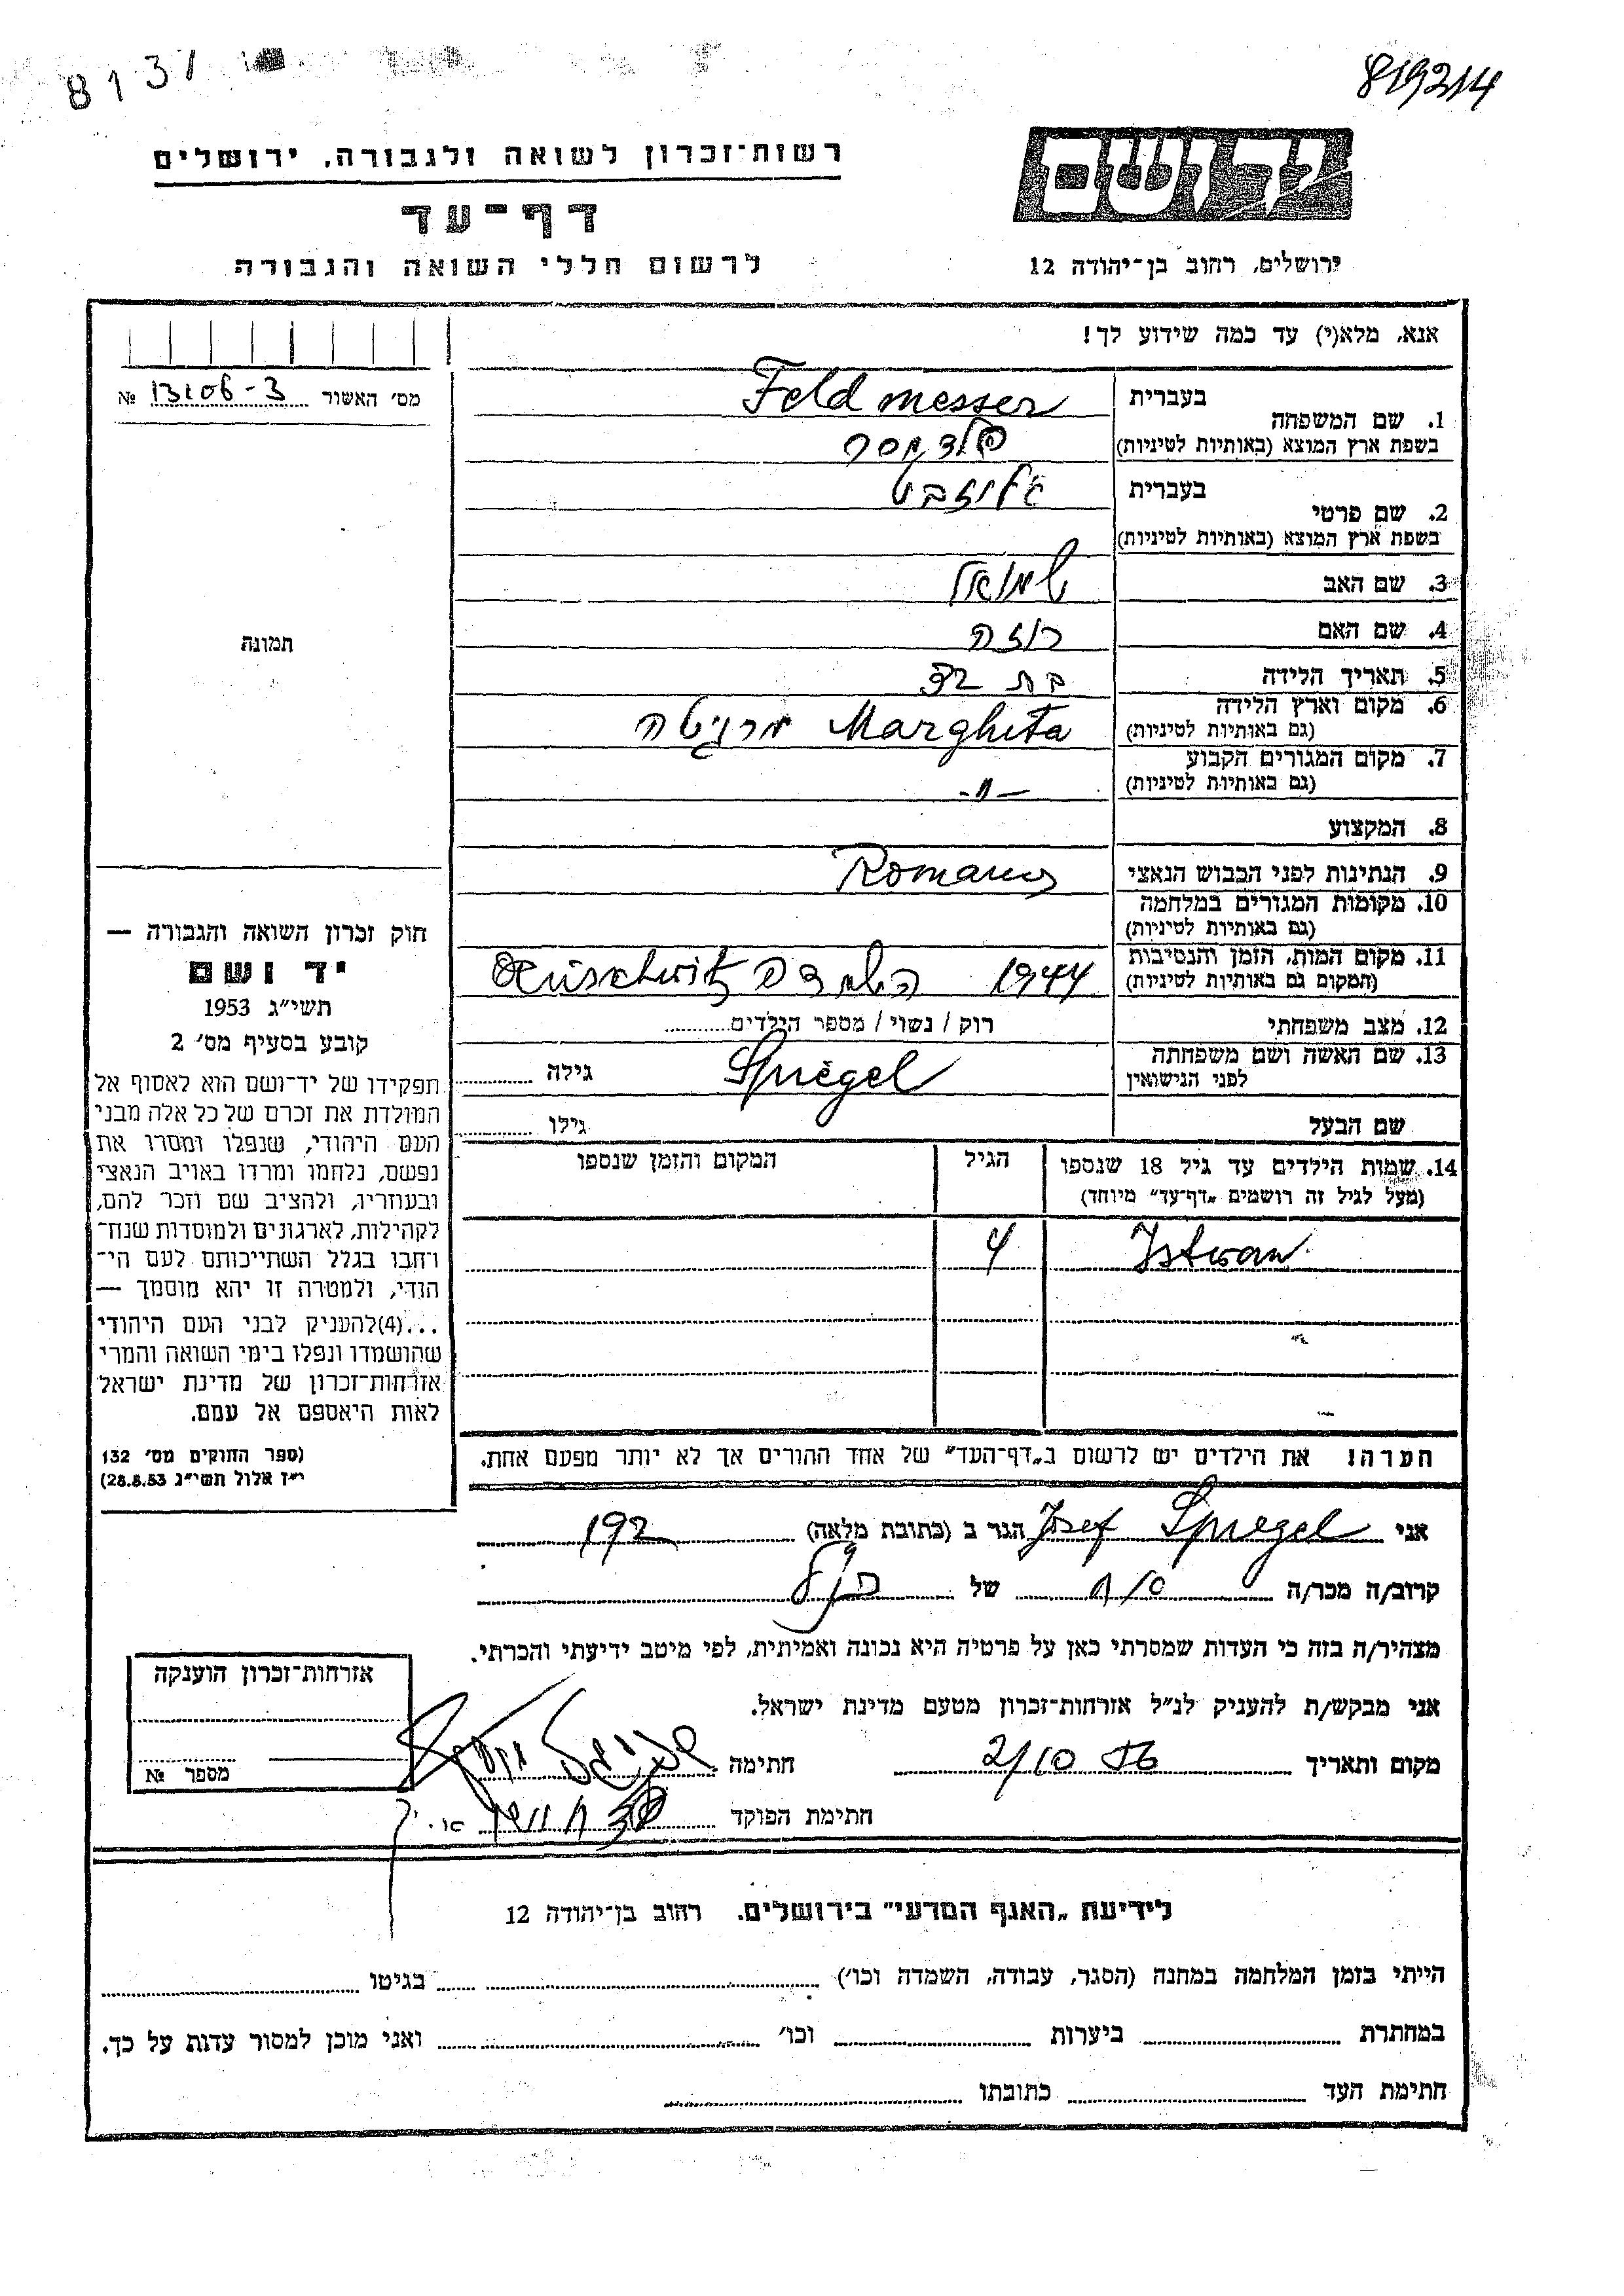 8131
819214
רשות־זכרון לשואה ולגבורה. ירושלים
דף־עד
לרשום חללי השואה והגבורה
ידושם
ירושלים, רחוב בן־יהודה 12
אנא, מלא(י) עד כמה שידוע לך!
מס׳ האשור № 13106-3
1. שם המשפחה
בעברית
Feldmesser
בשפת ארץ המוצא (באותיות לטיניות)
פלדמסר
2. שם פרטי
בעברית
אליזבט
בשפת ארץ המוצא (באותיות לטיניות)
3. שם האב
שמואל
4. שם האם
רוזה
5. תאריך הלידה
בת 32
6. מקום וארץ הלידה
(גם באותיות לטיניות)
Marghita מרגיטה
7. מקום המגורים הקבוע
(גם באותיות לטיניות)
-"-
8. המקצוע
9. הנתינות לפני הכבוש הנאצי
10. מקומות המגורים במלחמה
(גם באותיות לטיניות)
11. מקום המות, הזמן והנסיבות
(המקום גם באותיות לטיניות)
1944 השמדה
12. מצב משפחתי
רווק / נשוי / מספר הילדים
13. שם האשה ושם משפחתה
לפני הנישואין
Spiegel
גילה
שם הבעל
גילו
14. שמות הילדים עד גיל 18 שנספו
(מעל לגיל זה רושמים „דף־עד" מיוחד)
הגיל
המקום והזמן שנספו
Istvan 4
הערה! את הילדים יש לרשום ב„דף־העד" של אחד ההורים אך לא יותר מפעם אחת.
תמונה
חוק זכרון השואה והגבורה —
יד ושם
תשי״ג 1953
קובע בסעיף מס׳ 2
תפקידו של יד־ושם הוא לאסוף אל
המולדת את זכרם של כל אלה מבני
העם היהודי, שנפלו ומסרו את
נפשם, נלחמו ומרדו באויב הנאצי
ובעוזריו, ולהציב שם וזכר להם,
לקהילות, לארגונים ולמוסדות שנח־
רחבו בגלל השתייכותם לעם הי־
הודי, ולמטרה זו יהא מוסמך —
...(4)להעניק לבני העם היהודי
שהושמדו ונפלו בימי השואה והמרי
אזרחות־זכרון של מדינת ישראל
לאות היאספם אל עמם.
(ספר החוקים מס׳ 132
י״ז אלול תשי״ג 28.8.53)
אני Josef Spiegel הגר ב (כתובת מלאה)
קרוב/ה מכר/ה של
מצהיר/ה בזה כי העדות שמסרתי כאן על פרטיה היא נכונה ואמיתית, לפי מיטב ידיעתי והכרתי.
אני מבקש/ת להעניק לנ״ל אזרחות־זכרון מטעם מדינת ישראל.
מקום ותאריך 2/10 56 חתימה שפיגל יוסף
חתימת הפוקד
אזרחות־זכרון הוענקה
מספר №
לידיעת „האגף המדעי" בירושלים. רחוב בן־יהודה 12
הייתי בזמן המלחמה במחנה (הסגר, עבודה, השמדה וכו׳) בגיטו
במחתרת ביערות וכו׳ ואני מוכן למסור עדות על כך.
חתימת העד כתובתו